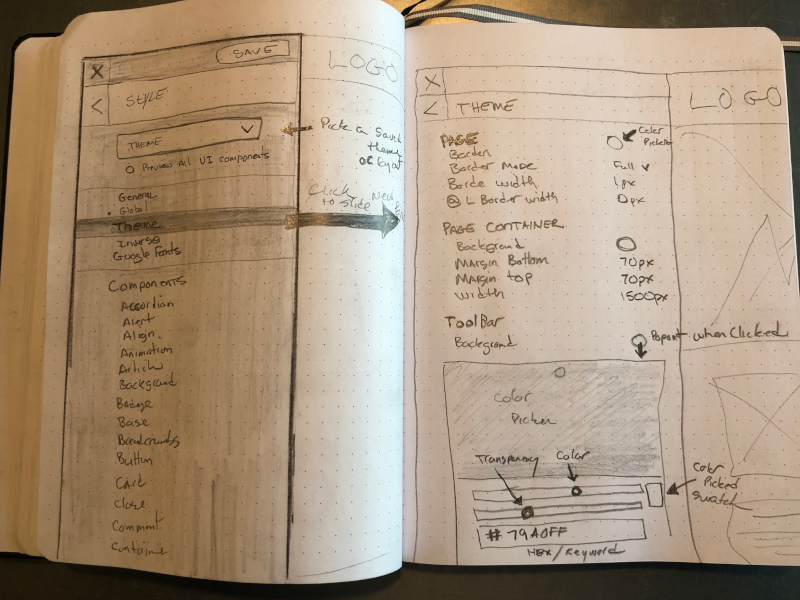 X
SAVE
LOGO
< STYLE
THEME
Preview All UI components
Pick a Saved
theme
or layout
General
Global
Theme
Inverse
Google Fonts
Click Next
to slide Page
Components
Accordian
Alert
Align.
Animation
Article
Background
Badge
Base
Breadcrumbs
Button
CARD
Close
Comment
Container
X
LOGO
< THEME
PAGE
Color
Picker
Border
Border Mode Full
Borde width 1px
@ L Border width 0px
PAGE CONTAINER
Background
Margin Bottom 70px
Margin top 70px
Width 1500px
ToolBar
Background
Popout when Clicked
Color
Picker
Transparency Color
Color
Picked
Swatch
# 79A0FF
HEX/Keyword